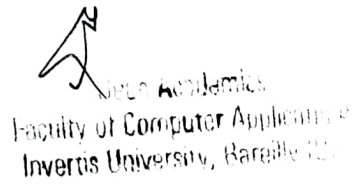 Dean Academics
Faculty of Computer Applications
Invertis University, Bareilly